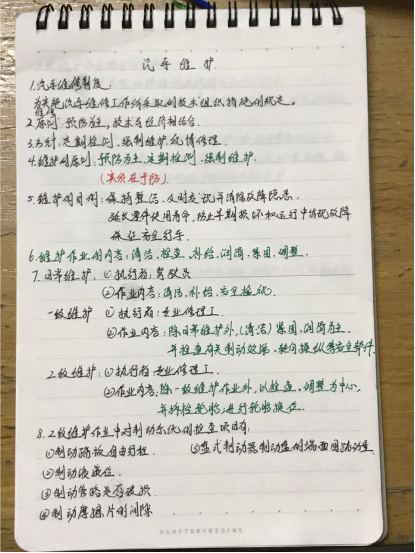 汽车维护
1.汽车维修制度
为实施汽车维修工作所采取的技术组织措施的规定。
2.原则:预防为主,技术与经济相结合。
维修
3.方针:定期检测,强制维护,视情修理.
4.维护的原则:预防为主,定期检测,强制维护.
(实质在于防)
5.维护的目的:保持整洁,及时发现并消除故障隐患,
延长零件使用寿命,防止早期损坏和运行中出现故障
保证安全行车.
6.维护作业的内容:清洁,检查,补给,润滑,紧固,调整
7.日常维护:①执行者:驾驶员
②作业内容:清洁,补给,安全检视.
一级维护 ①执行者:专业修理工
②作业内容:除日常维护外,(清洁)紧固,润滑为主.
并检查有关制动效果,转向操纵等安全部件.
二级维护:①执行者:专业修理工.
②作业内容:除一级维护作业外,以检查,调整为中心,
并拆检轮胎,进行轮胎换位.
8.二级维护作业中对制动系统的检查项目有:
①制动踏板自由行程 ⑤盘式制动器制动盘的端面圆跳动量
②制动液液位
③制动管路是否破损
④制动摩擦片的间隙
OURSTORYBEGINS